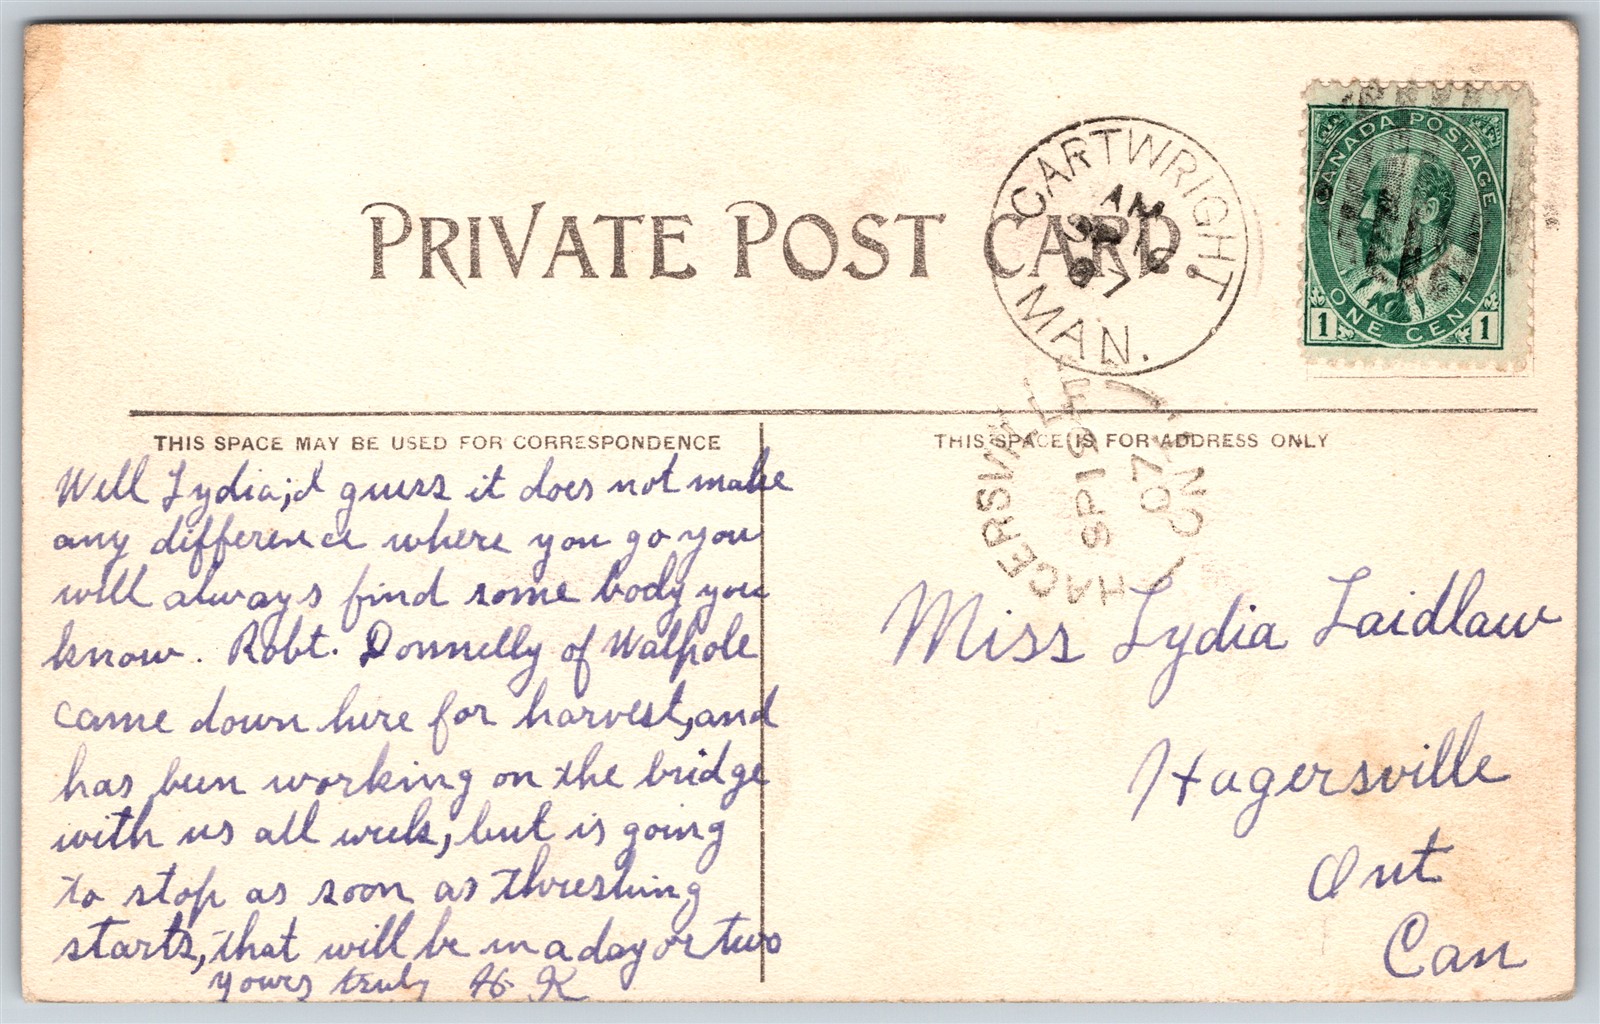 PRIVATE POST CARD.
CARTWRIGHT
AM
SP 16
07
MAN.
CANADA POSTAGE
ONE CENT
1 1
THIS SPACE MAY BE USED FOR CORRESPONDENCE
THIS SPACE IS FOR ADDRESS ONLY
HAGERSVILLE
SP 19
07
ONT
Well Lydia; I guess it does not make
any difference where you go you
will always find some body you
know. Robt. Donnelly of Walpole
came down here for harvest, and
has been working on the bridge
with us all week, but is going
to stop as soon as threshing
starts, that will be in a day or two
yours truly H. K
Miss Lydia Laidlaw
Hagersville
Ont
Can